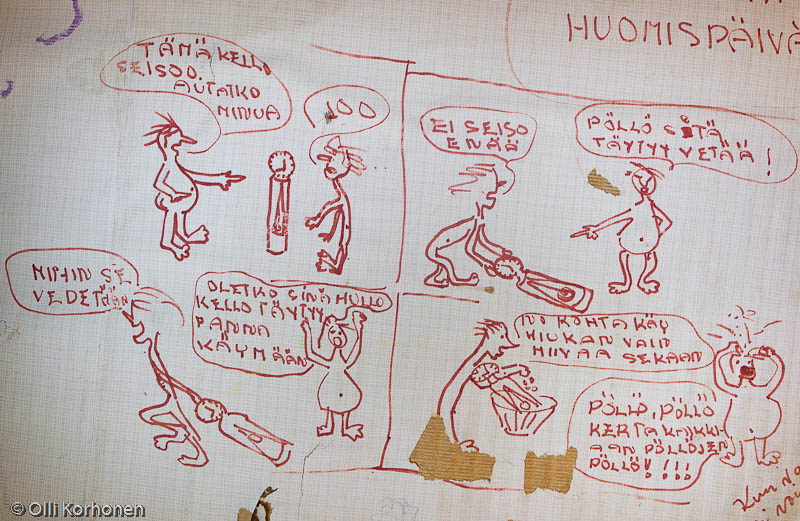 HUOMISPÄIVÄ
TÄMÄ KELLO
SEISOO.
AUTATKO
MINUA
JOO
EI SEISO
ENÄÄ
PÖLLÖ SITÄ
TÄYTYY VETÄÄ!
NIIHIN SE
VEDETÄÄN
OLETKO SINÄ HULLU
KELLO TÄYTYY
PANNA
KÄYMÄÄN
NO KOHTA KÄY
HIUKAN VAIN
HIIVAA SEKAAN
PÖLLÖ, PÖLLÖ
KERTAKAIKKI-
AAN PÖLLÖJEN
PÖLLÖ!!!!!
© Olli Korhonen